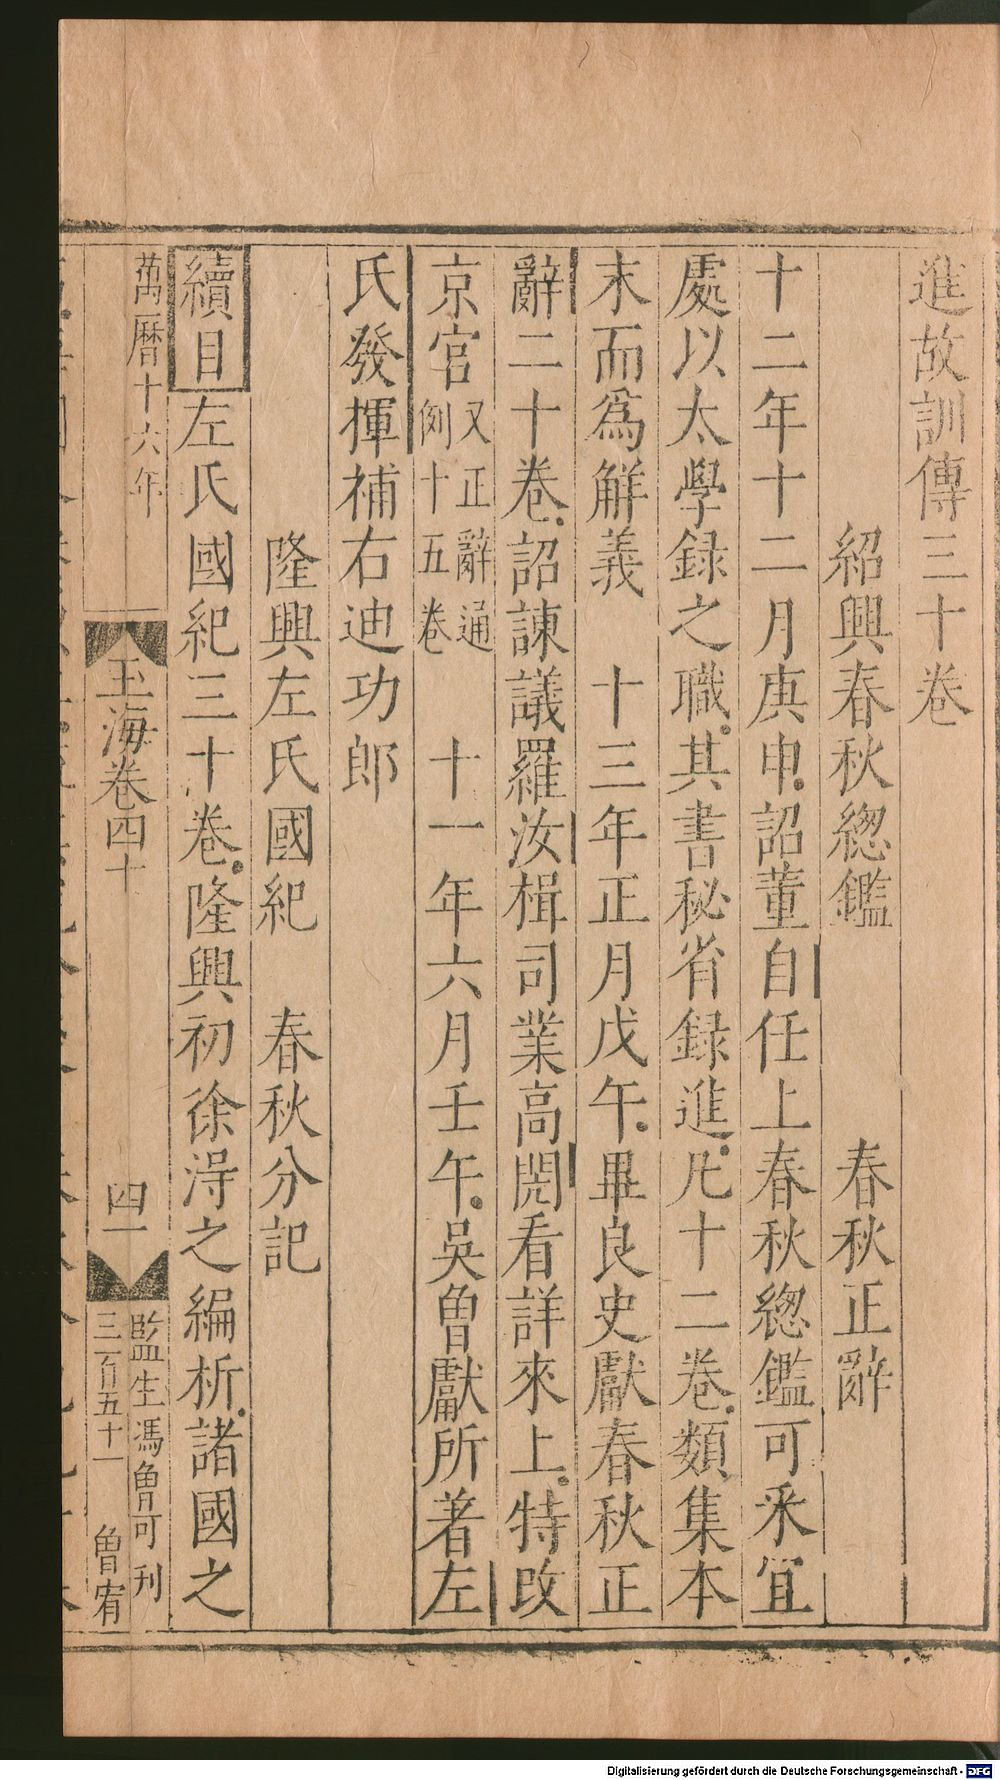 進故訓傳三十卷
紹興春秋緫鑑 春秋正辭
十二年十二月庚申詔董自任上春秋緫鑑可釆宜
處以太學録之職其書秘省録進凡十二卷類集本
末而為解義 十三年正月戊午畢良史獻春秋正
辭二十卷詔諫議羅汝楫司業高閌看詳來上特改
京官又正辭通例十五卷 十一年六月壬午吳曾獻所著左
氏發揮補右迪功郎
隆興左氏國紀 春秋分記
續目左氏國紀三十卷隆興初徐淂之編析諸國之
萬曆十六年
玉海卷四十
四一
監生馮魯可刊
三百五十一 曾宥
Digitalisierung gefördert durch die Deutsche Forschungsgemeinschaft - DFG